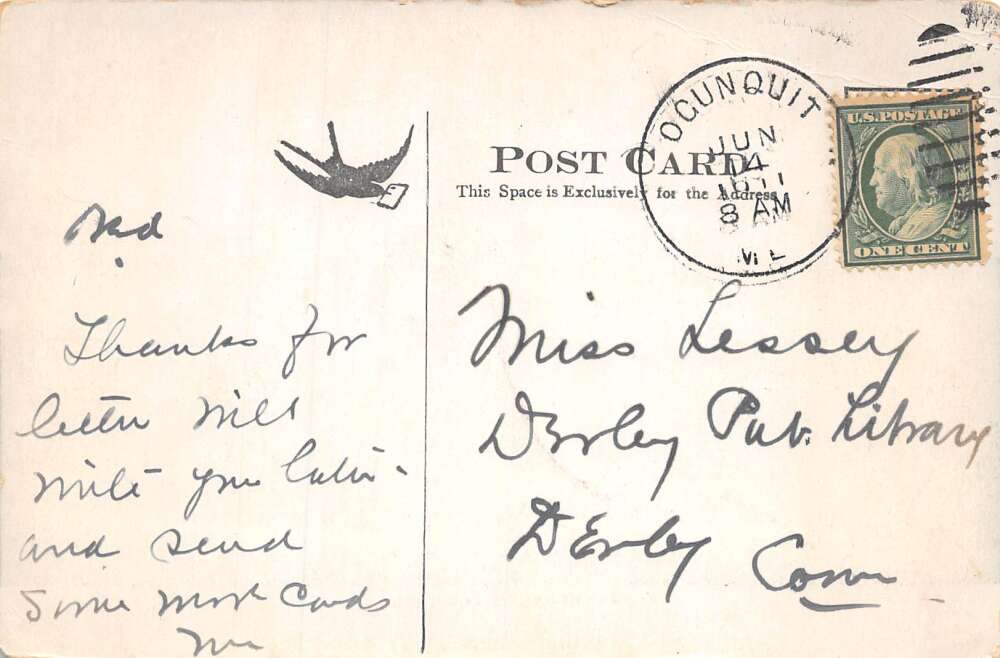 OGUNQUIT
JUN
14
1911
8 AM
ME
U.S. POSTAGE
ONE CENT
POST CARD
This Space is Exclusively for the Address
Miss Lessey
Derby Pub. Library
Derby
Conn
Thanks for
letter Will
write you later -
and send
some more cards